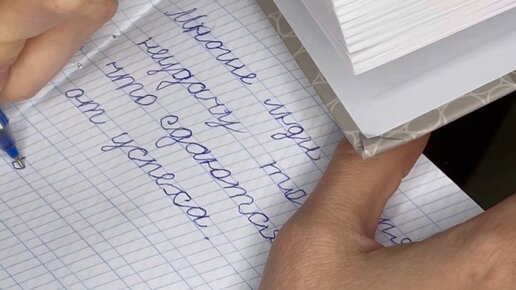 Многие люди
неудачу
что сдаются
от успеха.